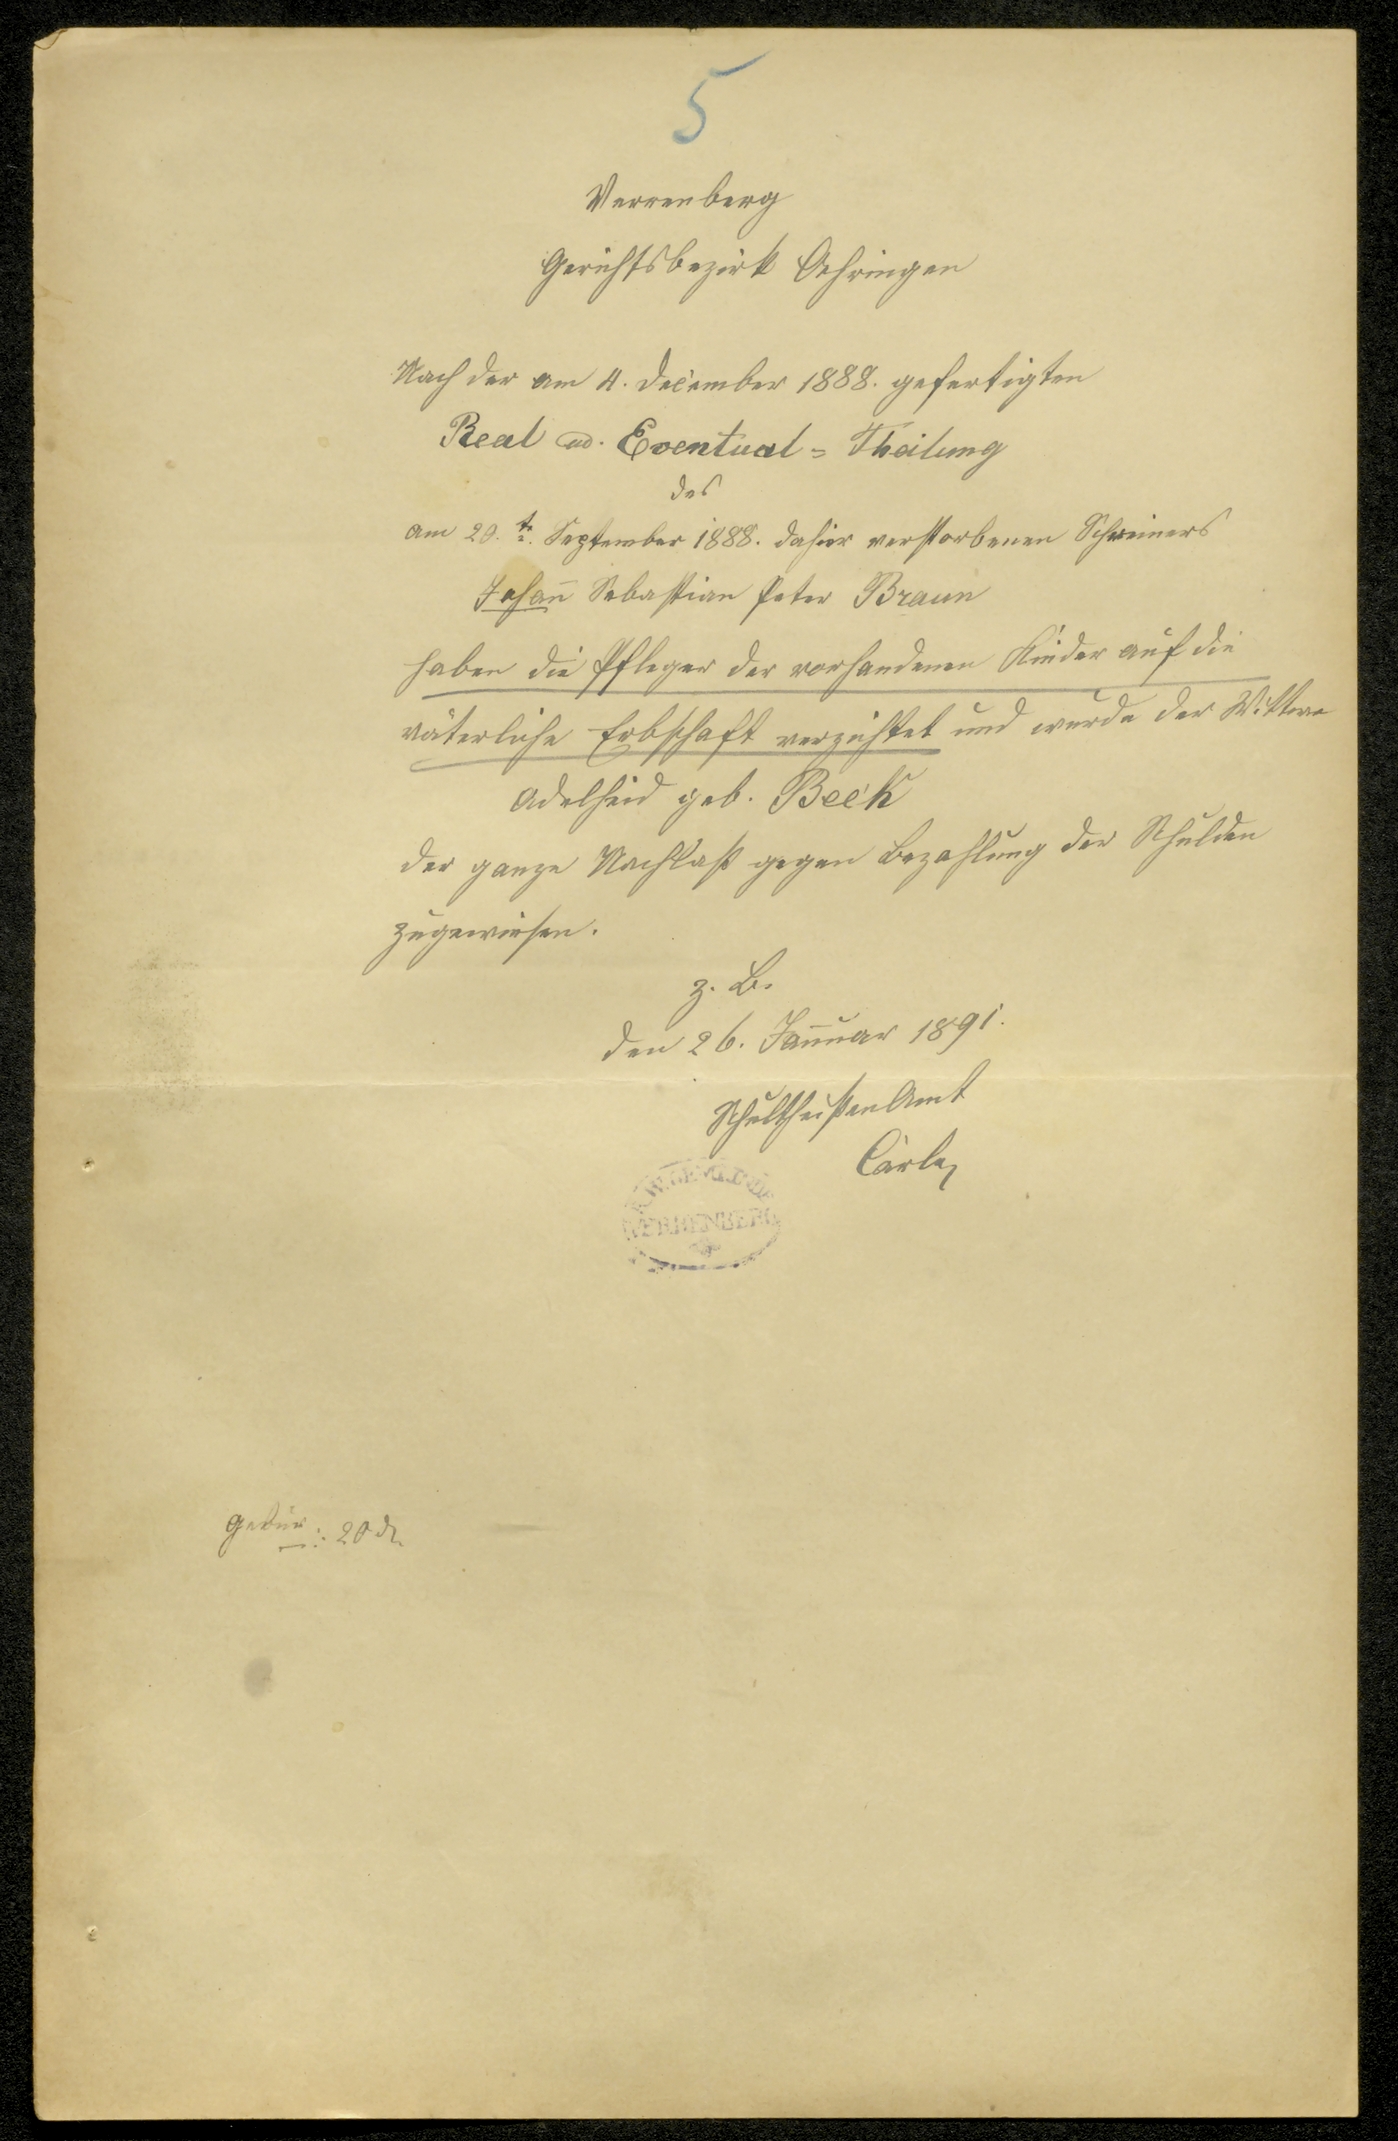 5
Verrenberg
Gerichtsbezirk Oehringen
Nach der am 4. December 1888. gefertigten
Real u. Eventual = Theilung
des
am 20.t. September 1888. dahier verstorbenen Schreiners
Johan̄ Sebastian Peter Braun
haben die Pfleger der vorhandenen Kinder auf die
väterliche Erbschaft verzichtet und wurde der Wittwe
Adelheid geb. Beck
der ganze Nachlaß gegen Bezahlung der Schulden
zugewiesen.
Z. B.
den 26. Januar 1891.
Schultheißenamt
K. W. GEMEINDE
VERRENBERG
20 ₰